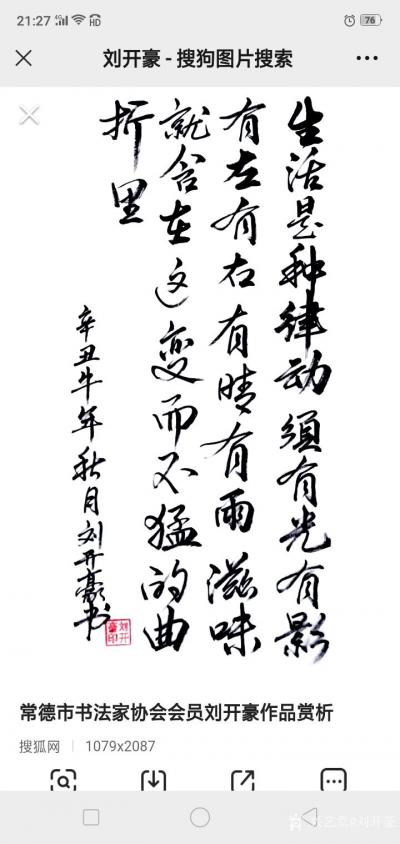 21:27
4G
HD
76
刘开豪 - 搜狗图片搜索
生活是种律动须有光有影
有左有右有晴有雨滋味
就含在这变而不猛的曲
折里
辛丑牛年秋月刘开豪书
刘开豪印
常德市书法家协会会员刘开豪作品赏析
搜狐网 | 1079x2087
@刘开豪